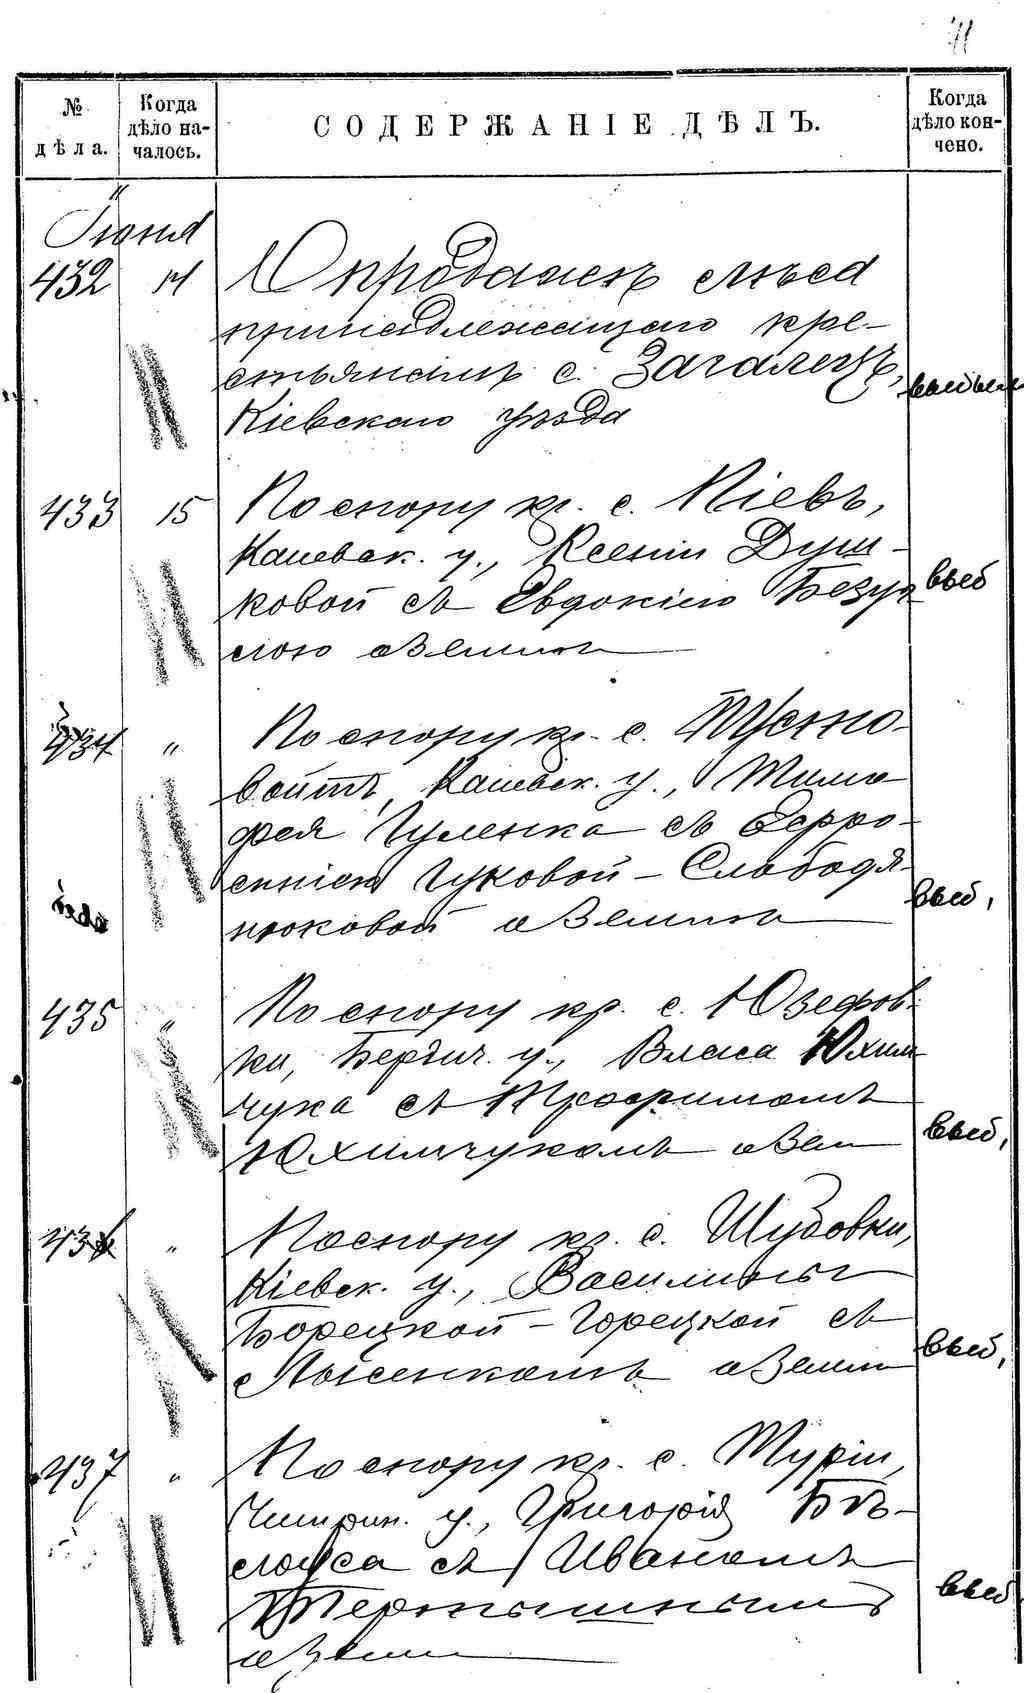 № дѣла.
Когда дѣло началось.
СОДЕРЖАНІЕ ДѢЛЪ.
Когда дѣло кончено.
Іюня
432 14 О продажѣ лѣса
принадлежащаго кре-
стьянамъ с. Загалецъ,
Кіевскаго уѣзда
433 15 По спору кр. с. Кіевъ,
Каневск. у., Ксеніи Душ-
ковой съ Евдокіею Безуг-
лою о земли
434 " По спору кр. с. Пусто-
войтъ, Каневск. у., Тимо
фея Гуленка съ Евфро-
синіею Гуковой - Слободя-
нюковой о земли
435 " По спору кр. с. Юзефов-
ки, Бердич. у., Власа Юхим
чука съ Трофимомъ
Юхимчукомъ о зем
436 " По спору кр. с. Шубовки,
Кіевск. у., Василины
Борецкой - Горецкой съ
Лысенкомъ о земли
437 " По спору кр. с. Туріи,
Чигирин. у., Григорія Бѣ-
лоуса съ Иваномъ
о земли